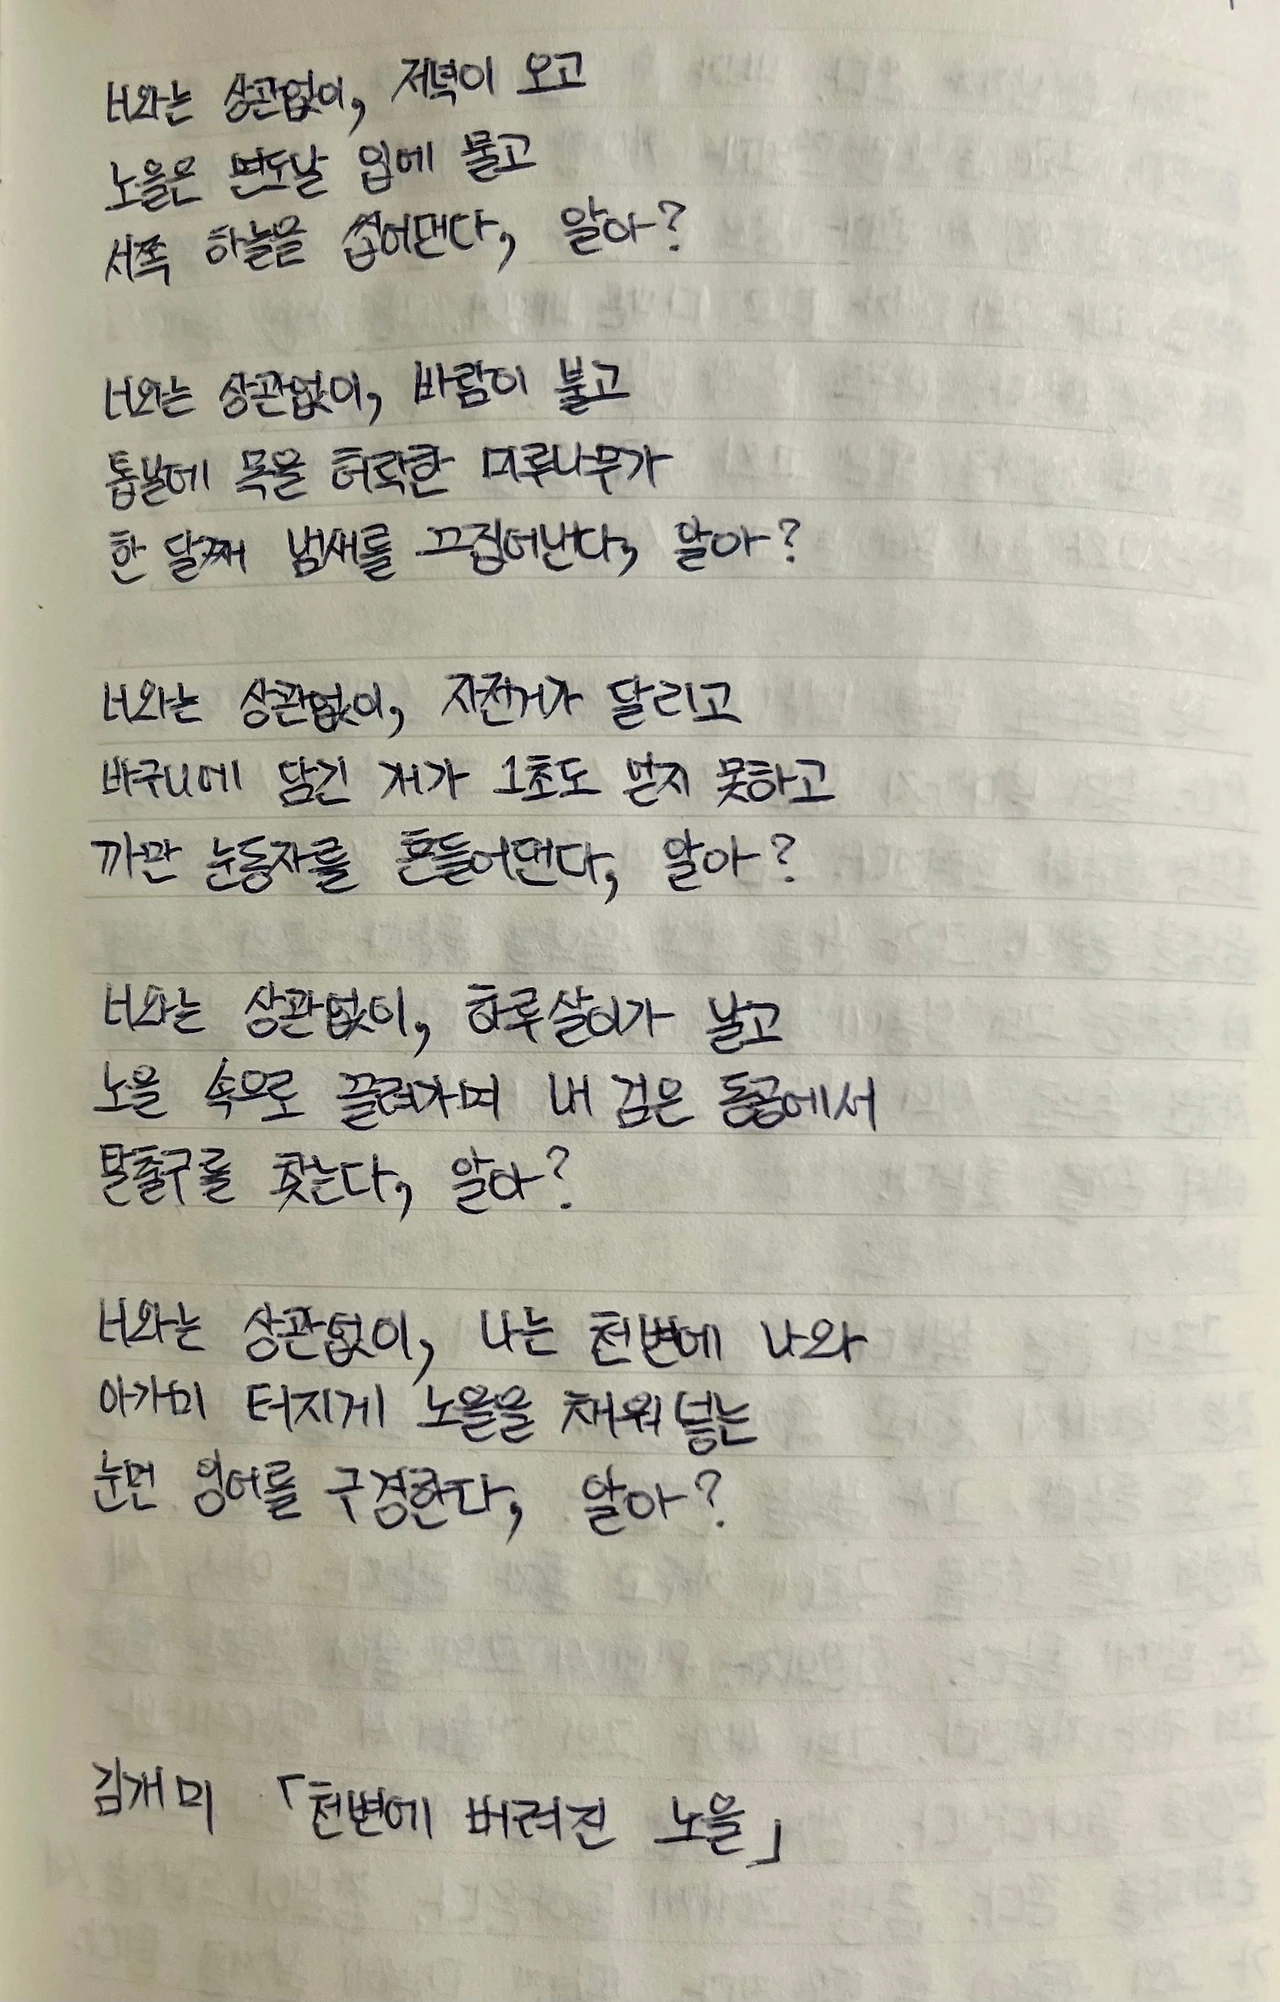 너와는 상관없이, 저녁이 오고
노을은 면도날 입에 물고
서쪽 하늘을 씹어댄다, 알아?
너와는 상관없이, 바람이 불고
톱날에 목을 허락한 미루나무가
한 달째 냄새를 끄집어낸다, 알아?
너와는 상관없이, 자전거가 달리고
바구니에 담긴 개가 1초도 받지 못하고
까만 눈동자를 흔들어댄다, 알아?
너와는 상관없이, 하루살이가 날고
노을 속으로 끌려가며 내 검은 동공에서
탈출구를 찾는다, 알아?
너와는 상관없이, 나는 천변에 나와
아가미 터지게 노을을 채워 넣는
눈먼 잉어를 구경한다, 알아?
김개미 「천변에 버려진 노을」